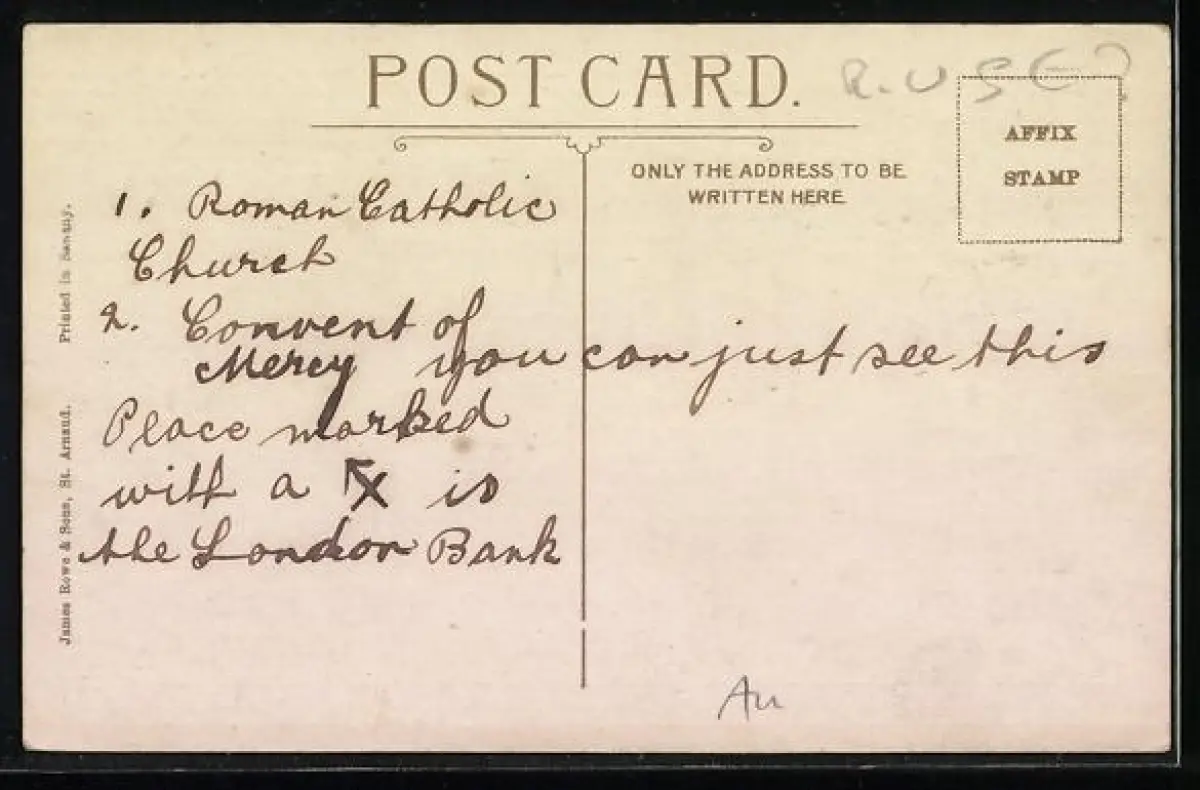 POST CARD.
AFFIX
STAMP
ONLY THE ADDRESS TO BE
WRITTEN HERE.
1. Roman Catholic
Church
2. Convent of
Mercy you can just see this
Place marked
with a X is
the London Bank
Au
James Rowe & Sons, St. Arnaud. Printed in Saxony.